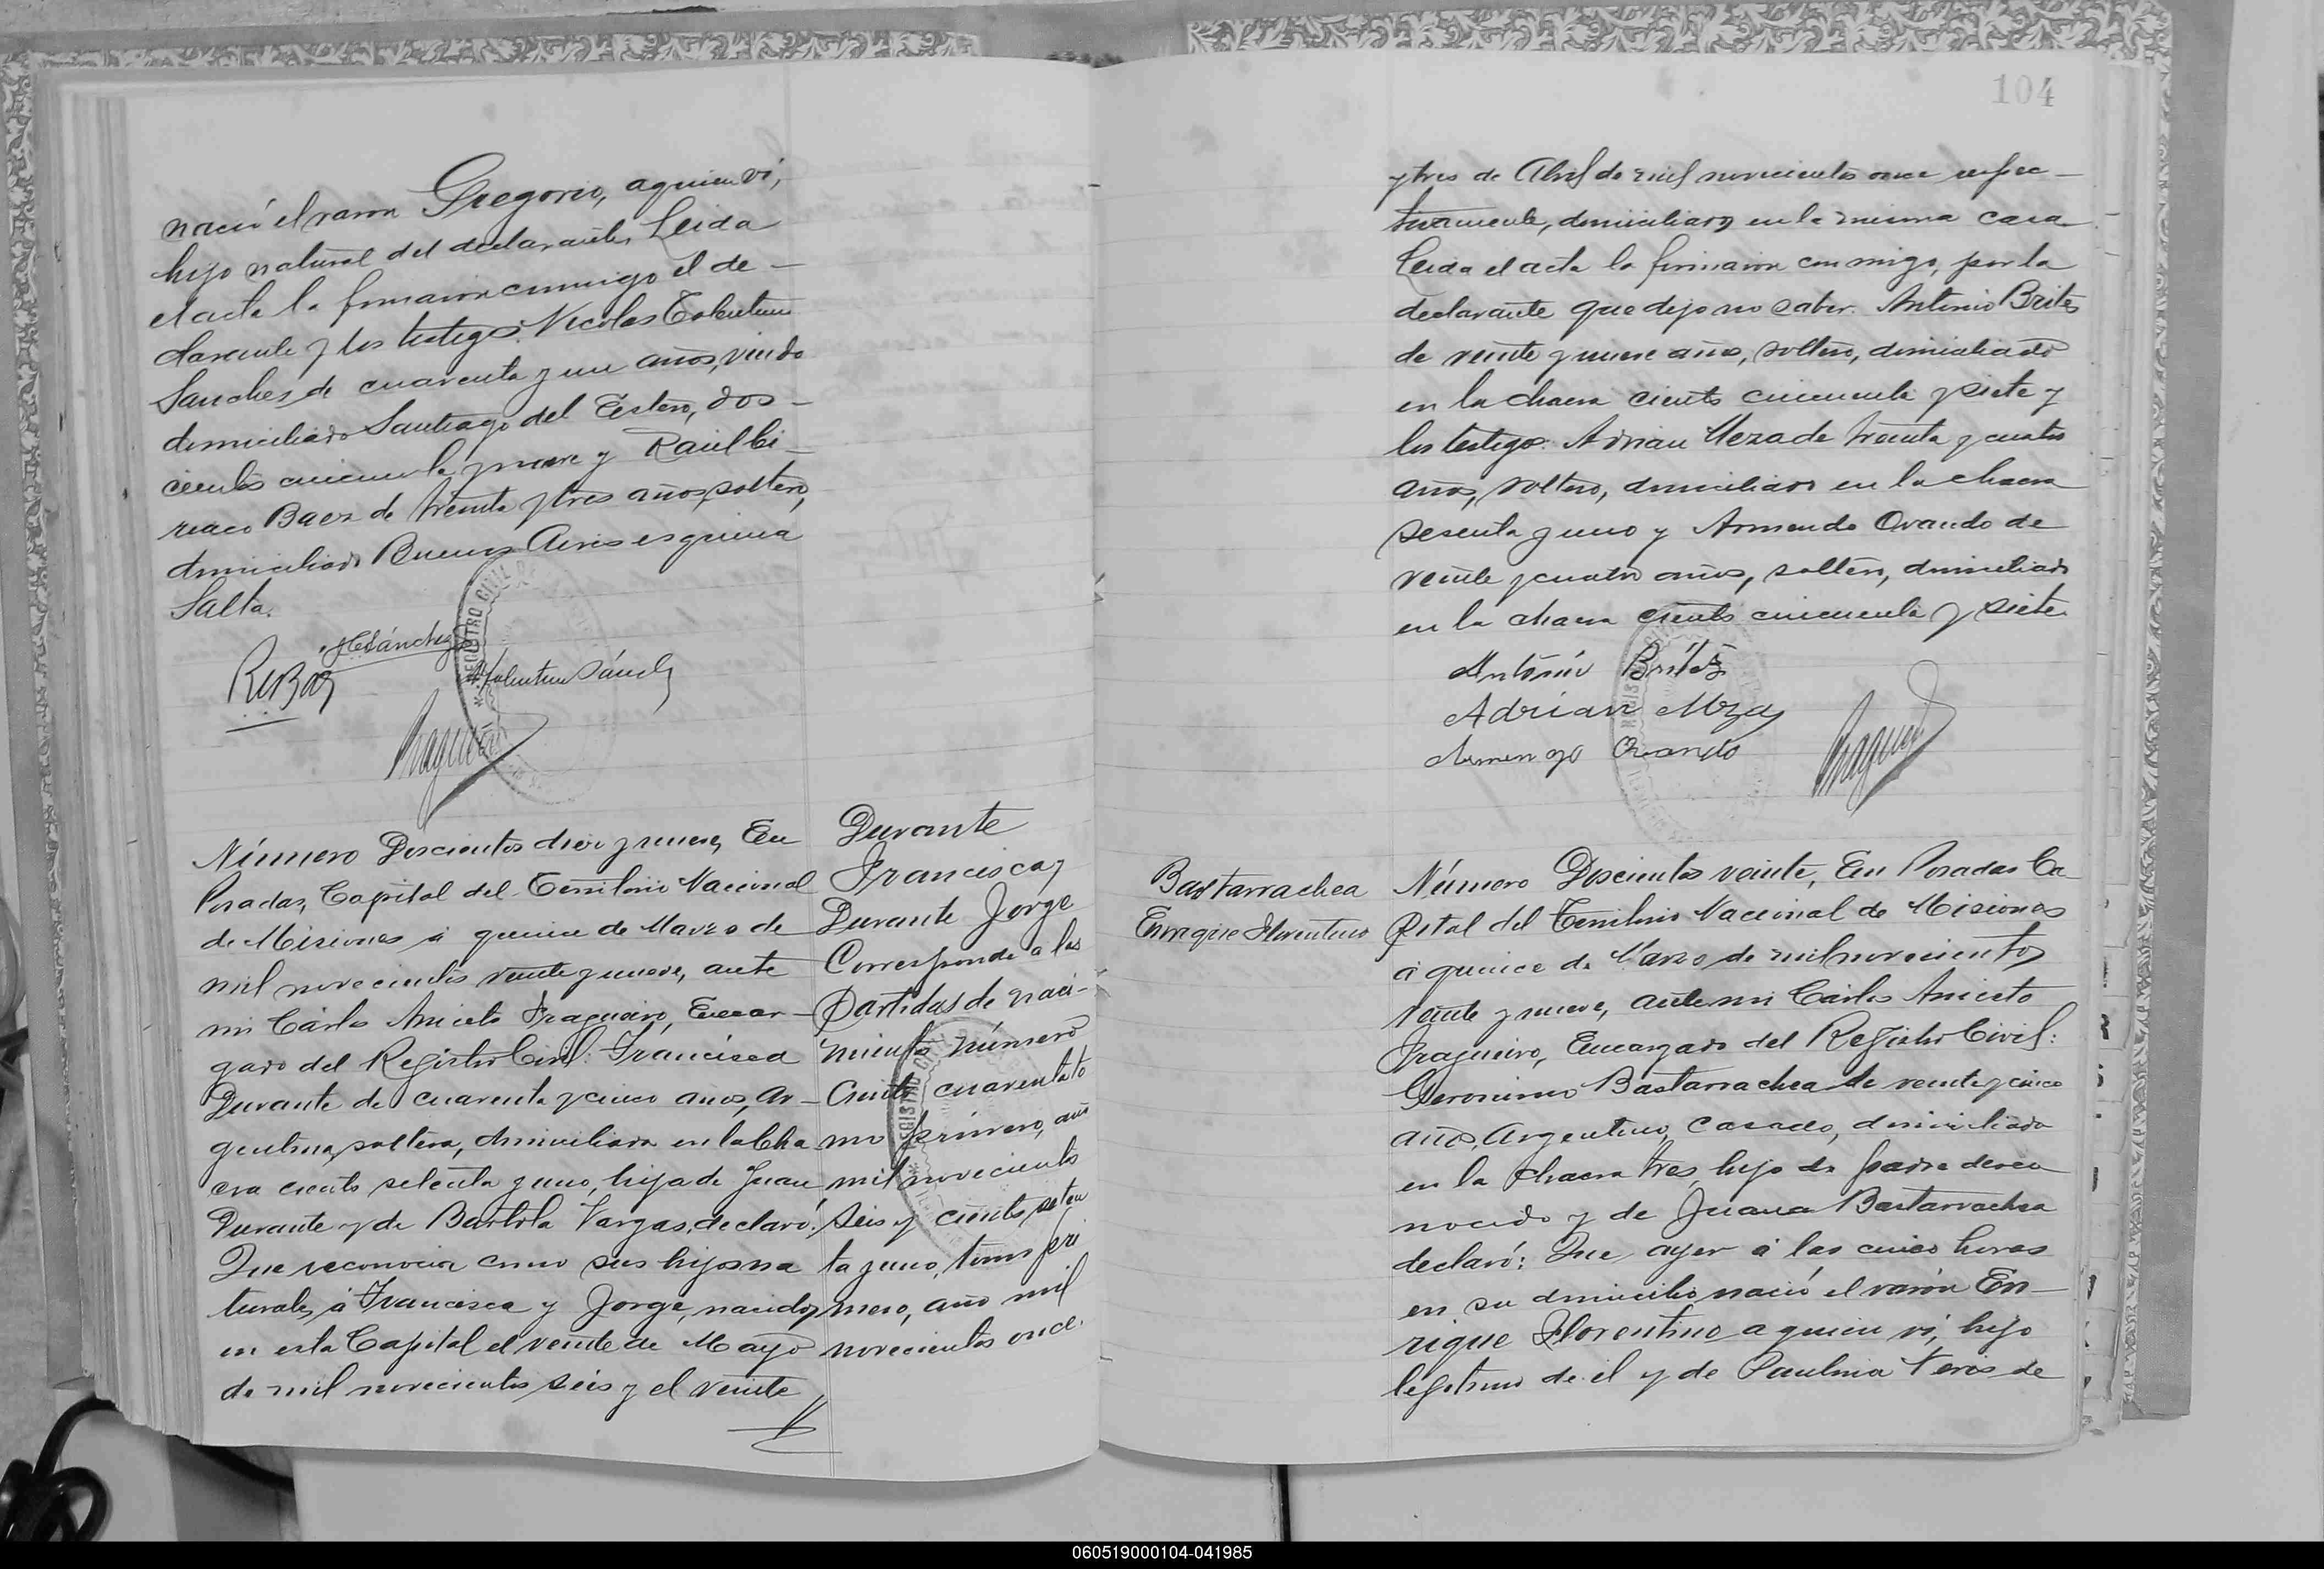 nació el varon Gregorio, a quien ví,
hijo natural del declarante. Leida
el acta la firmaron conmigo el de-
clarante y los testigos: Nicolas Tolentino
Sanches de cuarenta y un años, viudo
domiciliado Santiago del Estero, dos-
cientos cincuenta y nueve y Raúl Ci-
riaco Baez de treinta y tres años, soltero,
domiciliado Buenos Aires esquina
Salta.
Sánchez
RCBaez
Tolentino Sánch
Número Doscientos diez y nueve, En
Posadas, Capital del Territorio Nacional
de Misiones á quince de Marzo de
mil novecientos veinte y nueve, ante
mi Cárlos Aniceto Fragueiro, Encar-
gado del Registro Civil: Francisca
Durante de cuarenta y cinco años, ar-
gentina, soltera, domiciliada en la Cha-
cra ciento setenta y uno, hija de Juan
Durante y de Bartola Vargas, declaró:
Que reconocia como sus hijos na
turales á Francisca y Jorge, nacidos
en esta Capital el veinte de Mayo
de mil novecientos seis y el veinte
Durante
Francisca y
Durante Jorge
Corresponde a las
partidas de naci-
miento número
Ciento cuarenta to
mo primero, año
mil novecientos
seis y ciento seten
ta y uno, tomo pri
mero, año mil
novecientos once.
104
y tres de Abril de mil novecientos once respec-
tivamente, domiciliados en la misma casa
Leida el acta la firmaron conmigo, por la
declarante que dijo no saber: Antonio Brites
de veinte y nueve años, soltero, domiciliado
en la chacra ciento cincuenta y siete y
los testigos: Adrian Meza de treinta y cuatro
años, soltero, domiciliado en la chacra
sesenta y uno y Armando Ovando de
veinte y cuatro años, soltero, domiciliado
en la chacra ciento cincuenta y siete.
Antonio Brítez
Adrian Meza
Ovando
Bastarrachea
Enrique Florentino
Número Doscientos veinte, En Posadas Ca
pital del Territorio Nacional de Misiones
á quince de Marzo de mil novecientos
veinte y nueve, ante mi Cárlos Aniceto
Fragueiro, Encargado del Registro Civil:
Geronimo Bastarrachea de veinte y cinco
años, Argentino, casado, domiciliado
en la chacra tres, hijo de padre desco
nocido y de Juana Bastarrachea
declaró: Que ayer á las cinco horas
en su domicilio nació el varón En-
rique Florentino a quien ví, hijo
legitimo de él y de Paulina de
060519000104-041985